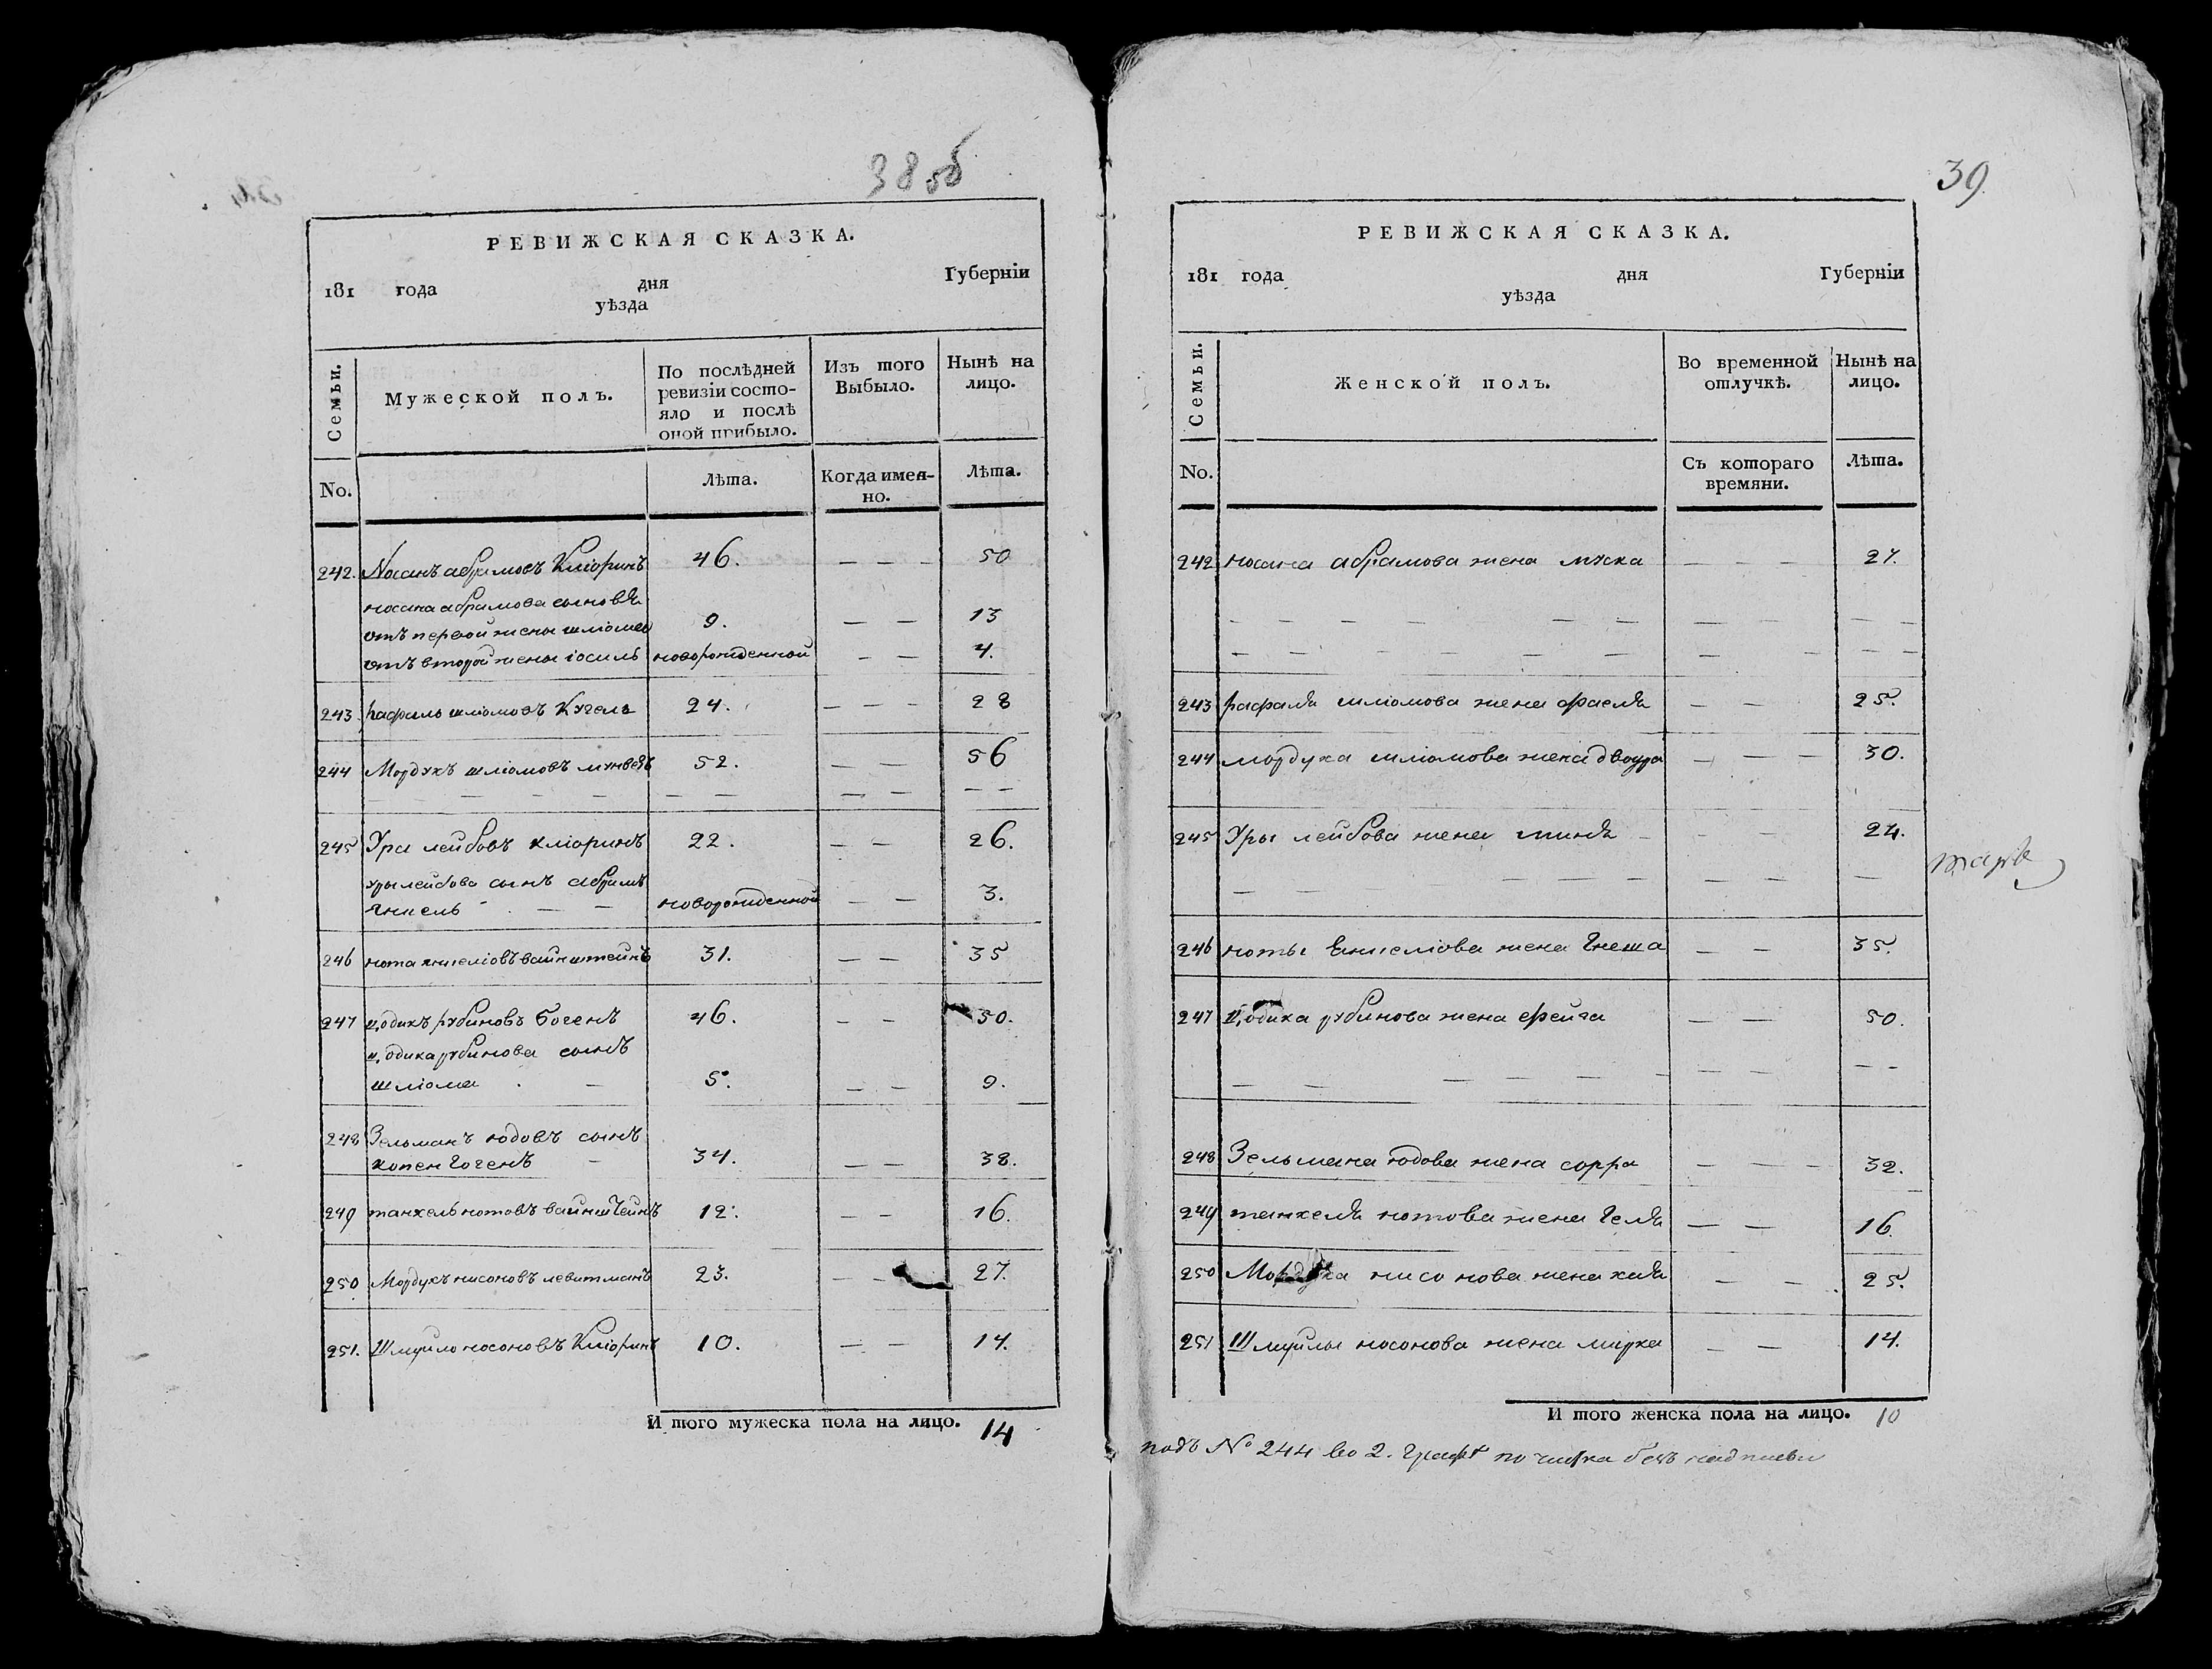 38 об
РЕВИЖСКАЯ СКАЗКА.
181 года дня Губерніи
уѣзда
Семьи.
Мужеской полъ.
По послѣдней ревизіи состо-
яло и послѣ
оной прибыло.
Изъ того
Выбыло.
Нынѣ на
лицо.
No.
Лѣта.
Когда имен-
но.
Лѣта.
242. Носанъ абрамовъ Кліоринъ 46. — — — 50
носана абрамова сыновья
отъ первой жены шліома 9. — — 13
отъ второй жены іосиль новорожденной — — 4.
243 рафаль шліомовъ Кугель 24. — — — 28
244 Мордухъ шліомовъ 52. — — 56
245 Ура лейбовъ кліоринъ 22. — — 26.
уры лейбова сынъ абрамъ
янкель — — новорожденной — — 3.
246 нота янкеліовъ вайнштейнъ 31. — — 35
247 цодикъ рубиновъ богенъ 46. — — 50.
цодика рубинова сынъ
шліома — 5. — — 9.
248 Зельманъ юдовъ сынъ
копенгогенъ — 34. — — 38.
249 танхель нотовъ вайнштейнъ 12. — — 16.
250 Мордухъ нисоновъ левитманъ 23. — — 27.
251. Шмуйло носоновъ Кліоринъ 10. — — 14.
И того мужеска пола на лицо. 14
39.
РЕВИЖСКАЯ СКАЗКА.
181 года дня Губерніи
уѣзда
Семьи.
Женской полъ.
Во временной
отлучкѣ.
Нынѣ на
лицо.
No.
Съ котораго
времяни.
Лѣта.
242 носана абрамова жена муска — — — 27.
243 рафаля шліомова жена фаеля — — 25.
244 мордуха шліомова жена двойра — — — 30.
245 Уры лейбова жена миня — — — 24.
246 ноты Енкеліова жена Гнеша — — 35.
247 цодика рубинова жена фейга — — 50.
248 Зельмана юдова жена сорра — — — 32.
249 танхеля нотова жена Геля — — 16.
250 Мордуха нисонова жена хая — — 25.
251 Шмуйлы носонова жена мірка — — 14.
И того женска пола на лицо. 10
подъ No 244 во 2. графѣ почистка безъ надписи